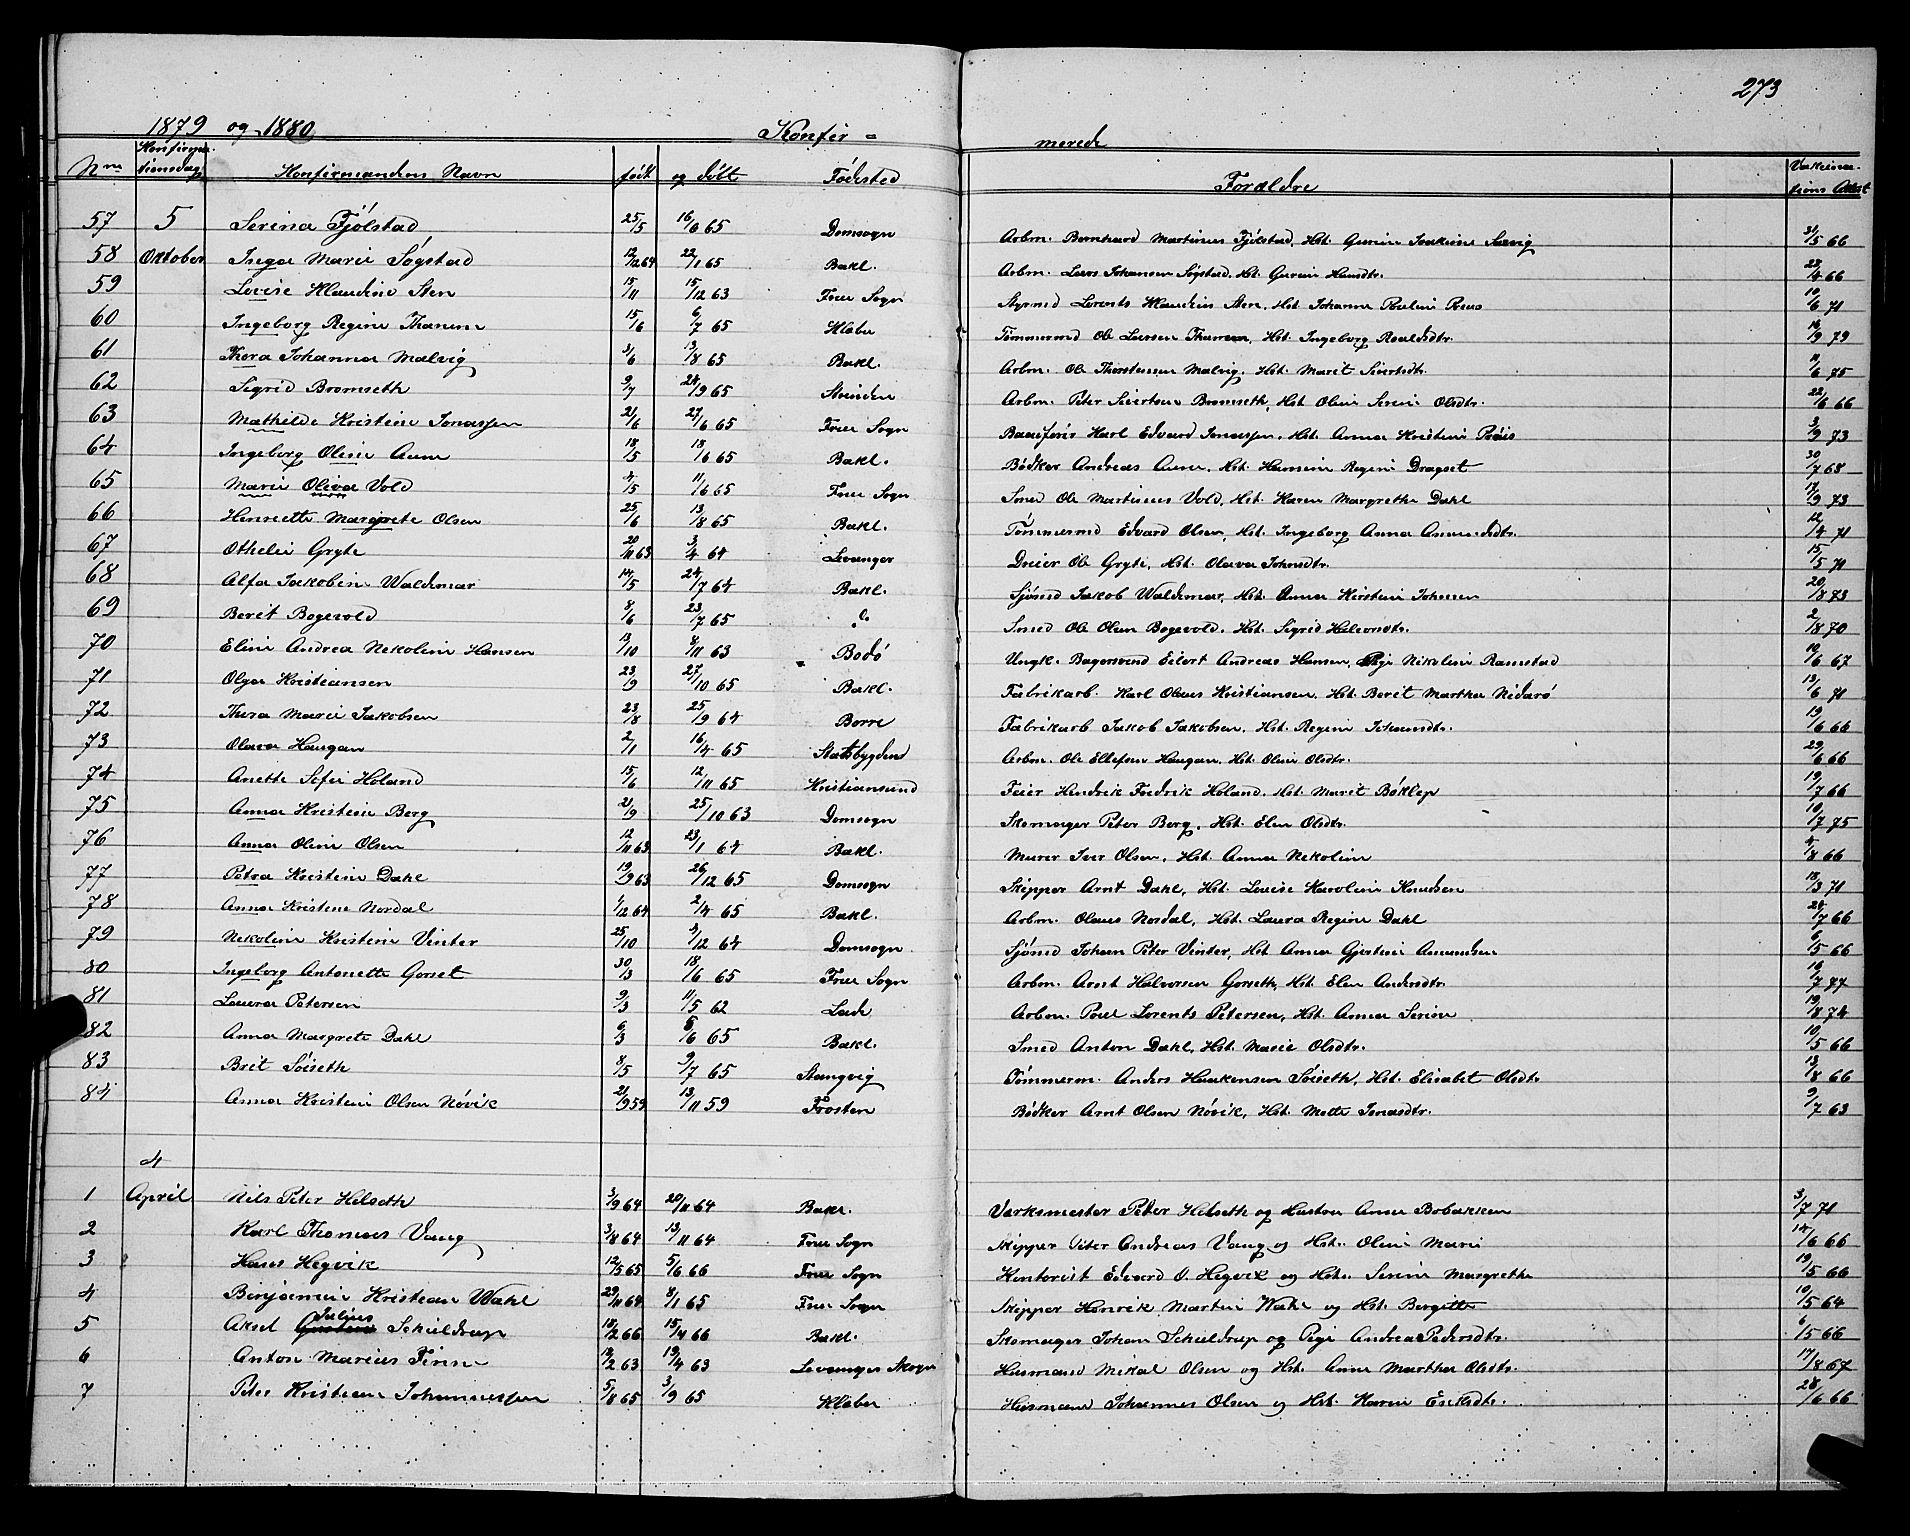 273
1879 og 1880 Konfir = merede
Nm Konfirma-tionsdag Konfirmandens Navn født og døbt Fødested Forældre Vakcina-tions Attest
57 5 Serina Fjølstad 25/5 16/6 65 Domsogn Arbm. Bernhard Martinus Fjølstad, Hst. Gurine Joakime Sæwig 31/5 66
58 Oktober Inga Marie Søgstad 12/12 64 22/1 65 Bakl. Arbm. Lars Johansen Søgstad, Hst. Gurine Hansdtr. 22/4 66
59 Lovise Klaudine Sten 15/11 15/12 63 Frue Sogn Styrmd Lorents Klaudius Sten, Hst. Johanna Pauline 10/6 71
60 Ingeborg Regine Thanem 15/6 6/7 65 Klæbu Tømmermd Ole Larsen Thanem, Hst. Ingeborg 16/9 79
61 Thora Johanna Malvig 3/6 13/8 65 Bakl. Arbm. Ole Thorstensen Malvig, Hst. Marit Sivertsdtr. 11/6 75
62 Sigrid Bromseth 9/7 24/9 65 Strinden Arbm. Peter Sivertsen Bromseth, Hst. Oline Serine Olsdtr. 22/6 66
63 Mathilde Kristine Jonassen 21/6 27/6 65 Frue Sogn Karl Edvard Jonassen, Hst. Anna Kristine 3/9 73
64 Ingeborg Oline Aune 18/5 18/6 65 Bakl. Bødker Andreas Aune, Hst. Hansine Regine Dragset 30/7 68
65 Marie Oliva Vold 4/5 11/6 65 Frue Sogn Smed Ole Martinus Vold, Hst. Karen Margrethe Dahl 17/9 73
66 Henriette Margrete Olsen 25/6 13/8 65 Bakl. Tømmermd Edvard Olsen, Hst. Ingeborg Anna 12/4 71
67 Othelie Gryte 20/11 63 3/4 64 Levanger Dreier Ole Gryte, Hst. Olava Johnsdtr. 15/5 71
68 Alfa Jakobine Waldemar 14/5 24/7 64 Bakl. Sjømd Jakob Waldemar, Hst. Anna Kirstine Johnsen 20/8 73
69 Berit Bogevold 8/6 23/7 65 do Smed Ole Olsen Bogevold, Hst. Sigrid Halvorsdtr. 2/8 70
70 Eline Andrea Nekoline Hansen 13/10 8/11 63 Bodø Ungk. Bagersvend Eilert Andreas Hansen, Pige Nikoline Ramstad 10/6 67
71 Olga Kristiansen 23/9 27/10 65 Bakl. Fabrikarb. Karl Olaus Kristiansen, Hst. Berit Martha Nidarø 13/6 71
72 Thora Marie Jakobsen 23/8 25/9 64 Borre Fabrikarb Jakob Jakobsen, Hst. Regine Johansdtr. 19/6 66
73 Olava Haugan 2/1 16/4 65 Statsbygden Arbm. Ole Ellefsen Haugan, Hst. Oline Olsdtr. 29/6 66
74 Anette Sofie Holand 15/6 12/11 65 Kristiansund Feier Hendrik Fredrik Holand, Hst. Marit Bøklep 19/7 66
75 Anna Kristine Berg 21/9 25/10 63 Domsogn Skomager Peter Berg, Hst. Elen Olsdtr. 10/7 75
76 Anna Oline Olsen 12/11 63 23/1 64 Bakl. Murer Iver Olsen, Hst. Anna Nekoline 4/8 66
77 Petra Kristine Dahl 19/9 63 26/12 65 Domsogn Skipper Arnt Dahl, Hst. Lovise Karoline Knudsen 18/3 71
78 Anna Kristine Nordal 1/12 64 2/4 65 Bakl. Arbm. Olaus Nordal, Hst. Laura Regine Dahl 24/7 66
79 Nekoline Kristine Vinter 25/10 3/12 64 Domsogn Sjømd Johan Peter Vinter, Hst. Anna Gjertine Amundsen 6/5 66
80 Ingeborg Antonette Gorset 30/3 18/6 65 Frue Sogn Arbm. Arnt Halvorsen Gorseth, Hst. Elen Andersdtr. 16/7 77
81 Laura Petersen 9/3 11/5 62 Lade Arbm. Poul Lorents Petersen, Hst. Anna Serine 19/8 74
82 Anna Margrete Dahl 6/3 5/6 65 Bakl. Smed Anton Dahl, Hst. Marie Olsdtr. 10/5 66
83 Brit Soiseth 8/5 9/7 65 Stangvig Tømmerm. Anders Haakensen Soiseth, Hst. Elisabet Olsdtr 13/8 66
84 Anna Kristine Olsen Nøvik 21/9 59 13/11 59 Frosten Bødker Arnt Olsen Nøvik, Hst. Mette Jonasdtr. 9/7 63
4
1 April Nils Peter Helseth 3/9 64 20/11 64 Bakl. Værksmester Peder Helseth og Hustru Anna Bobakken 3/7 71
2 Karl Thomas Vang 3/8 64 13/11 64 Frue Sogn Skipper Peter Andreas Vang og Hst. Oline Marie 14/6 66
3 Hans Hegvik 12/5 65 5/6 66 Frue Sogn Kontorist Edvard O. Hegvik og Hst. Serine Margrethe 19/5 66
4 Benjamin Kristian Wahl 29/11 64 8/1 65 Frue Sogn Skipper Henrik Martin Wahl og Hst. Bergitte 10/5 64
5 Aksel Julius Schieldrup 18/2 66 15/4 66 Bakl. Skomager Johan Schieldrup og Pige Andrea Pedersdtr. 6/15 66
6 Anton Marius Finne 12/2 63 19/4 63 Levanger Skogn Husmand Mikal Olsen og Hst. Anne Martha Olsdtr. 17/8 67
7 Peter Kristian Johannessen 5/8 65 3/9 65 Klæbu Husmand Johannes Olsen og Hst. Karen Eriksdtr. 28/6 66